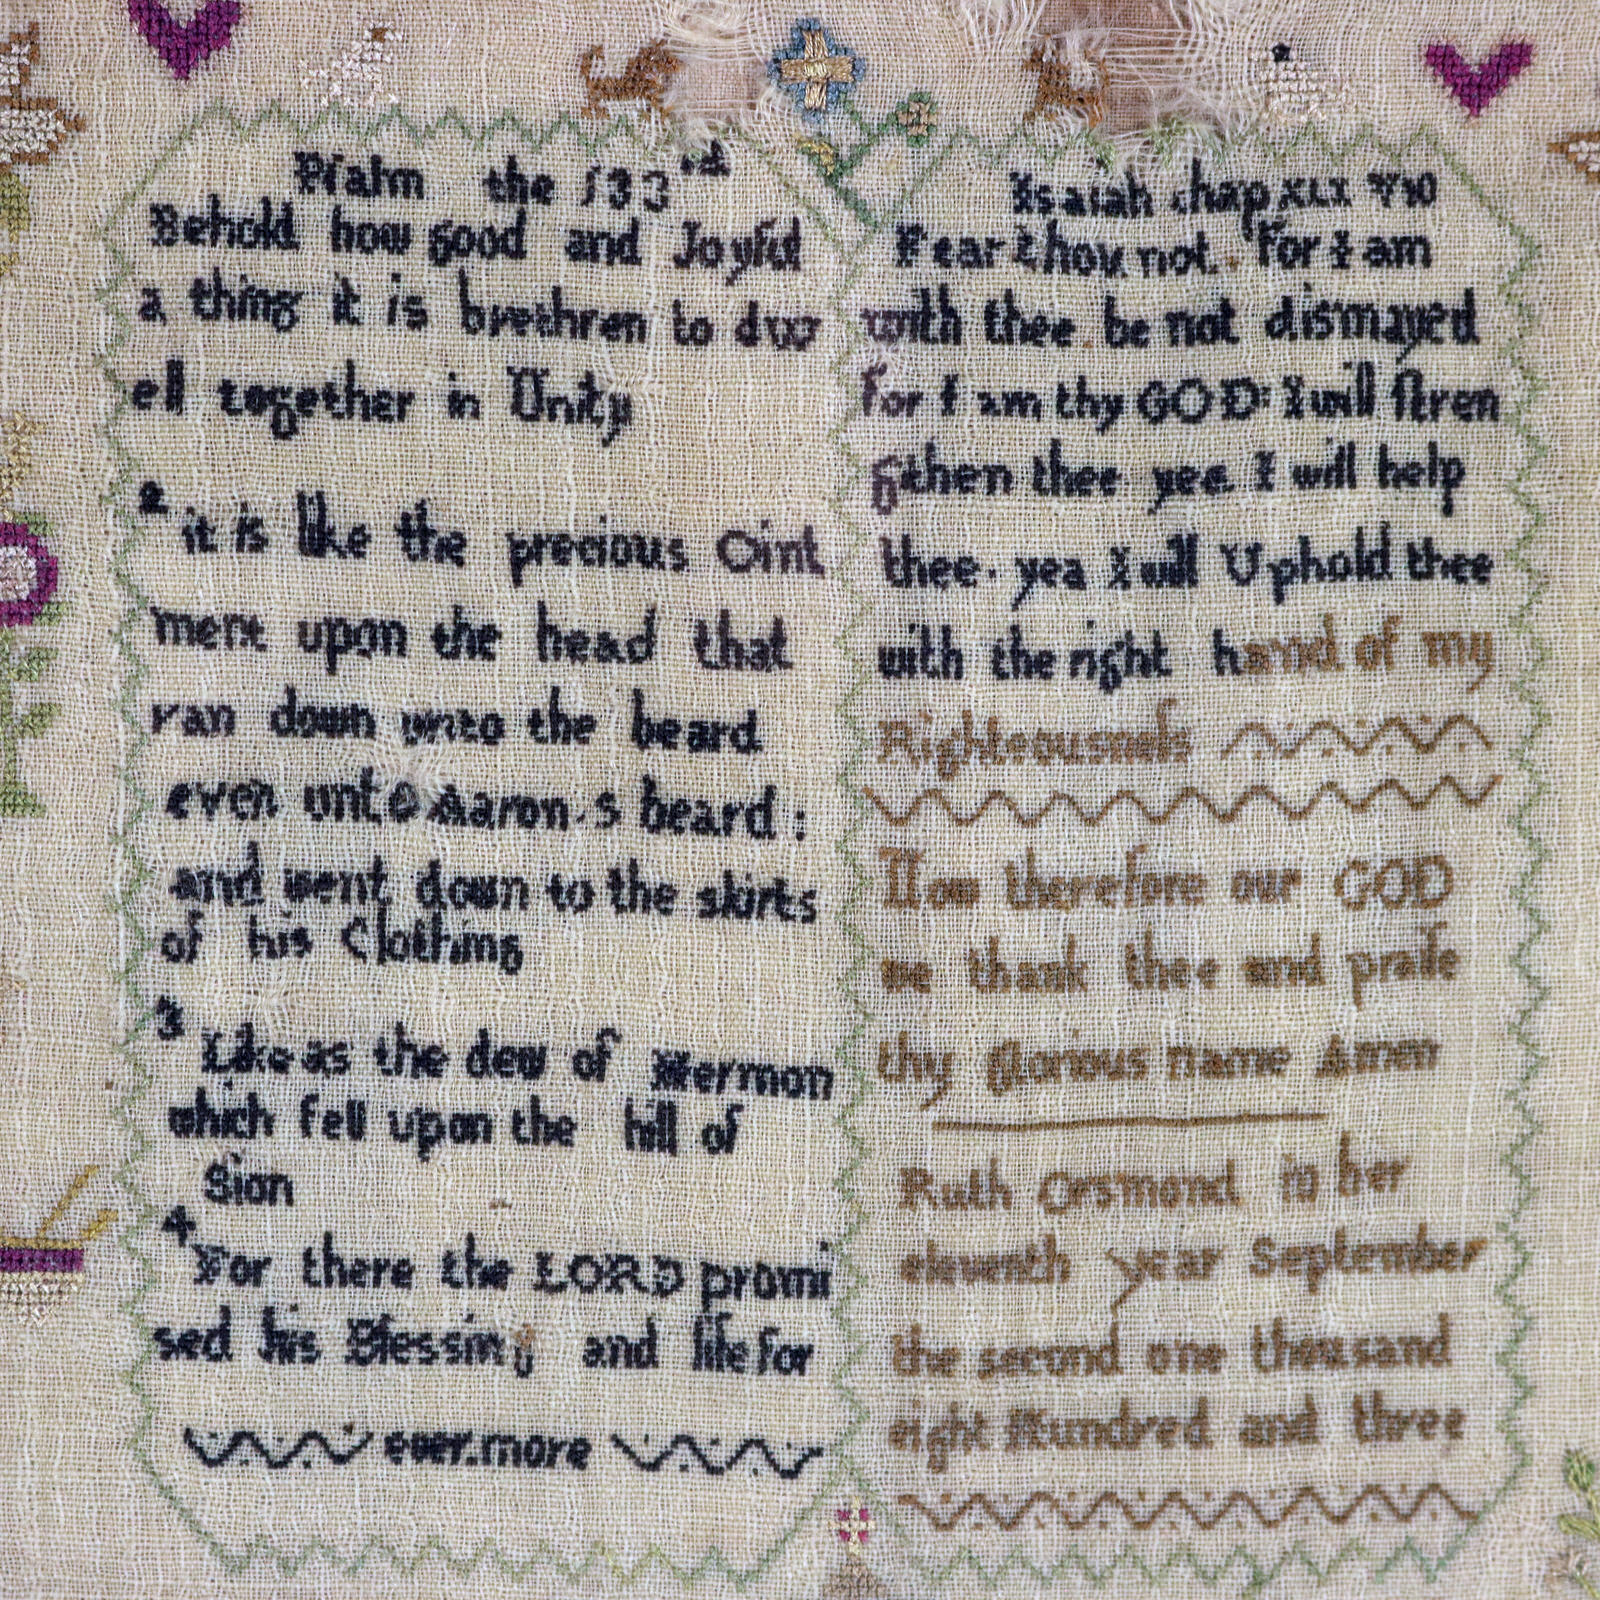 Psalm the 133rd
Behold how good and Joyful
a thing it is brethren to dw
ell together in Unity
2 it is like the precious Oint
ment upon the head that
ran down unto the beard
even unto Aaron.s beard:
and went down to the skirts
of his Clothing
3 Like as the dew of Hermon
which fell upon the hill of
Sion
4 For there the LORD promi
sed his Blessing and life for
ever.more
Isaiah chap XLI V 10
Fear thou not. For I am
with thee be not dismayed
For I am thy GOD: I will ſtren
gthen thee yea I will help
thee. yea I will Uphold thee
with the right hand of my
Righteousneſs
Now therefore our GOD
we thank thee and praiſe
thy glorious name Amen
Ruth Orsmond in her
eleventh year September
the second one thousand
eight Hundred and three